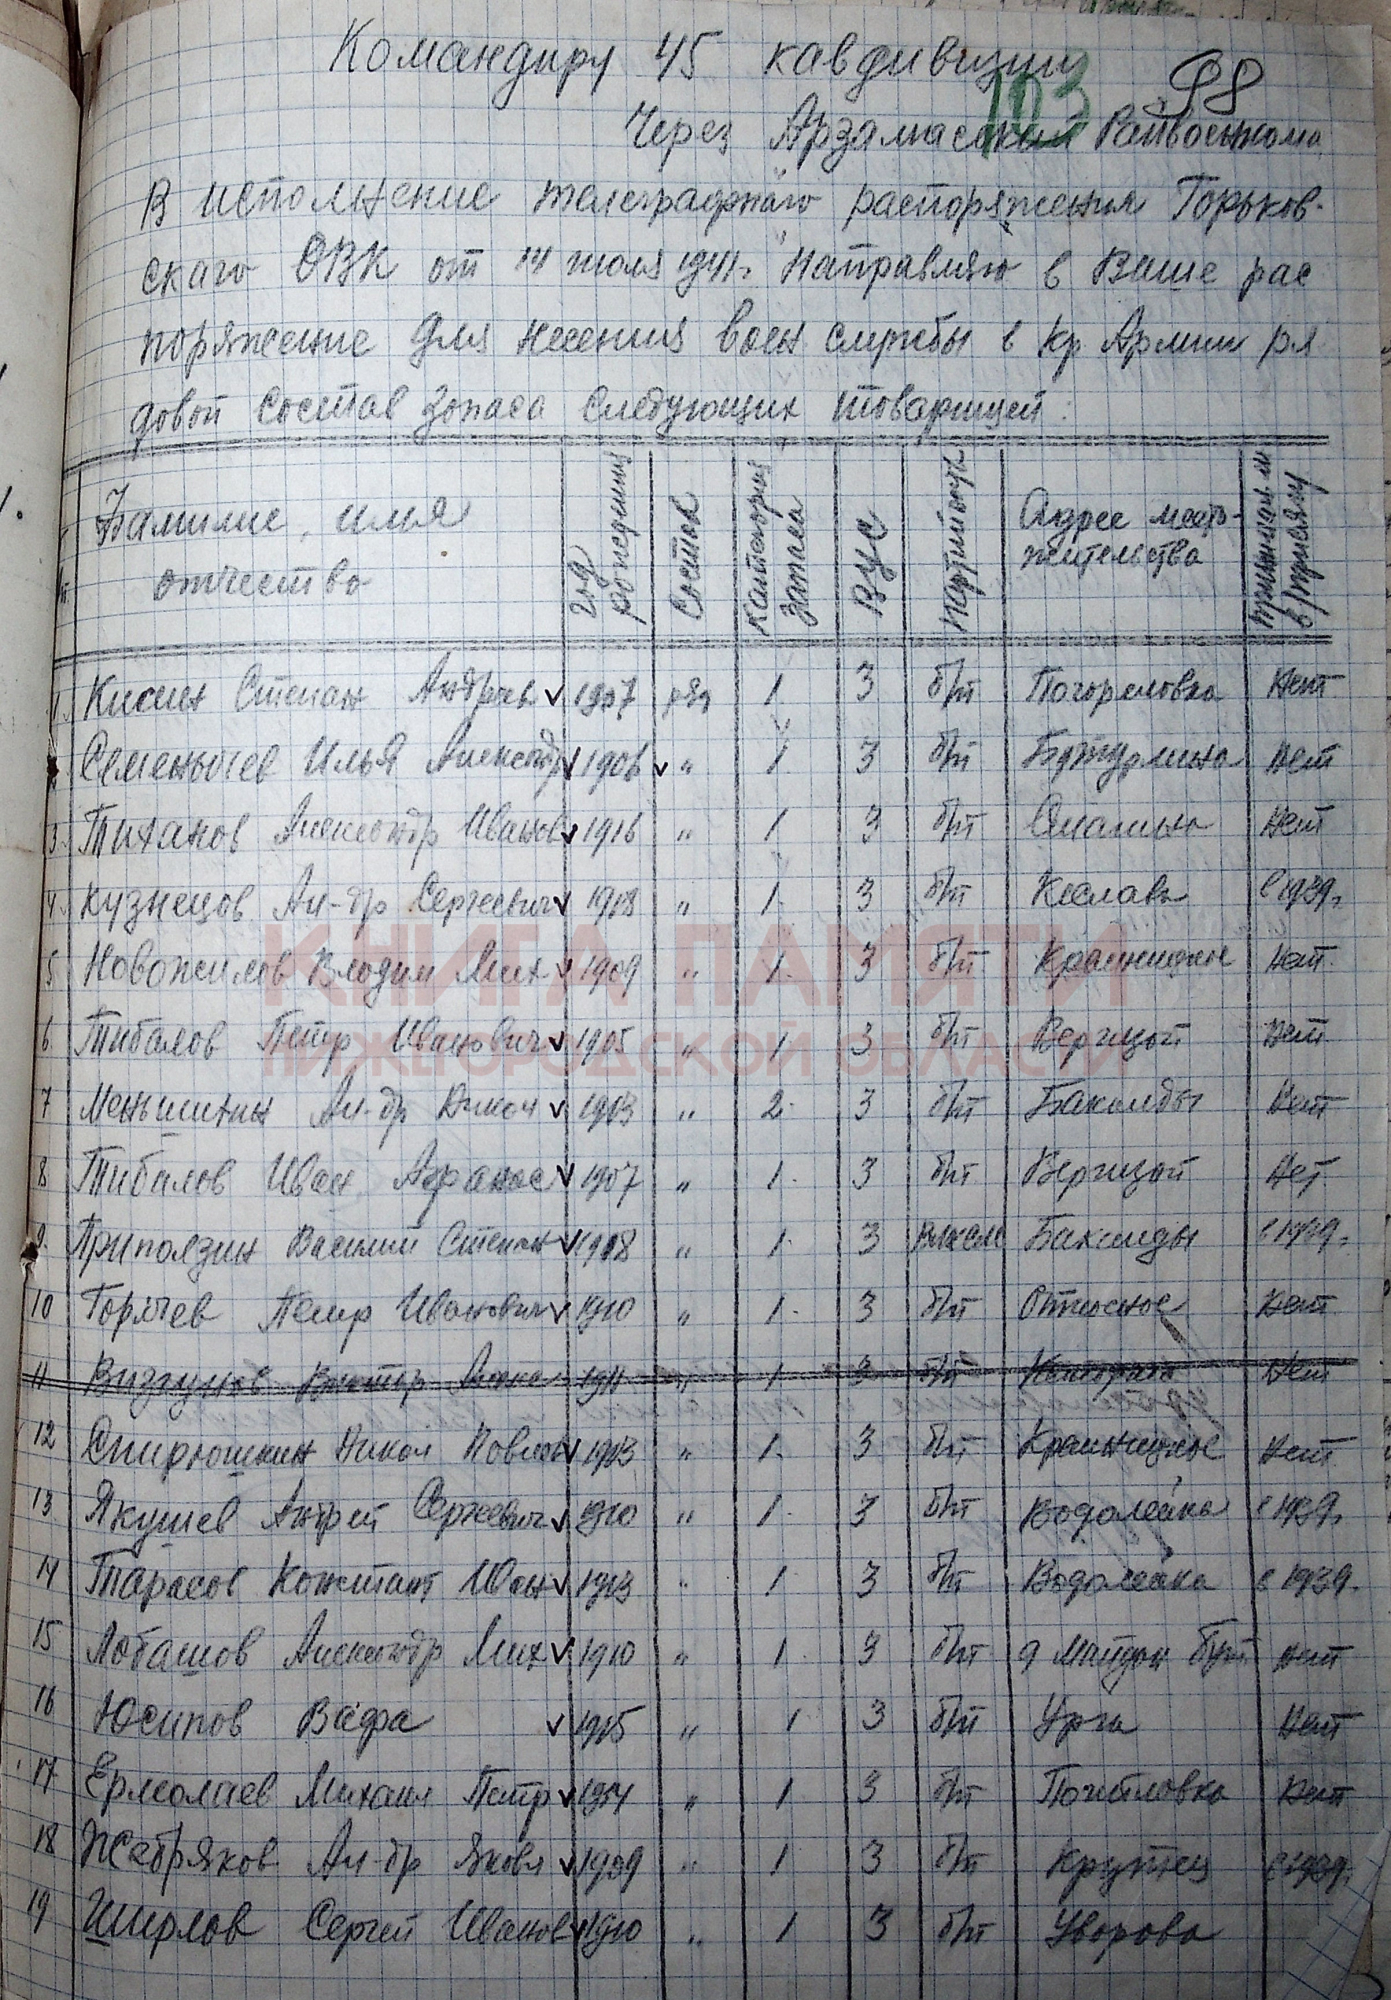 Командиру 45 кавдивизии
103
98
Через Арзамаский Райвоенкома
В исполнение телеграфнаго распоряжения Горьков-
скаго ОВК от 14 июля 1941г. Направляю в Ваше рас
поряжение для несения воен службы в Кр Армии ря
довой состав запаса следующих товарищей:
Фамилие, имя отчество год рождения состав категория запаса ВУС партийность Адрес место-жительства
1. Кисин Степан Андреев 1907 ряд 1. 3 б/п Погореловка Нет
Семенычев Илья Александр 1906 " 1 3 б/п Бутурлино Нет
3. Тиханов Александр Иванов 1916 " 1 3 б/п Нет
4. Кузнецов Ал-др Сергеевич 1908 " 1. 3 б/п Кеслава с 1939г.
5 Новожилов Владим Мих 1909 " 1. 3 б/п Нет.
6 Тибалов Петр Иванович 1905 " 1 3 б/п Нет.
7 Меньшитин Ал-др Никол 1903 " 2. 3 б/п Бакалды Нет
8 Тибалов Иван Афанас 1907 " 1. 3 б/п Нет
9. Приползин Василий Степан 1908 " 1. 3 ВЛКСМ с 1939г.
10 Горячев Петр Иванович 1910 " 1. 3 б/п Отписное Нет
11 Визгунов Виктор 1911 " 1 3 б/п Нет
12 Спирюшкин Никол Павлов 1903 " 1. 3 б/п Нет
13 Якушев Андрей Сергевич 1910 " 1. 3 б/п Водолейка с 1939г.
14 Тарасов Констант Иван 1913 " 1. 3 б/п Водолейка с 1939г.
15 Лобашов Александр Мих 1910 " 1. 3 б/п Майдан бут Нет
16 Юсипов Вафа 1915 " 1 3 б/п Урга Нет
17 Ермолаев Михаил Петр " 1 3 б/п Нет
18 Жебряков Ал-др Яковл 1909 " 1 3 б/п Крутец с 1939г.
19 Ширлов Сергей Иванов 1910 " 1 3 б/п Уварова
КНИГА ПАМЯТИ
НИЖЕГОРОДСКОЙ ОБЛАСТИ